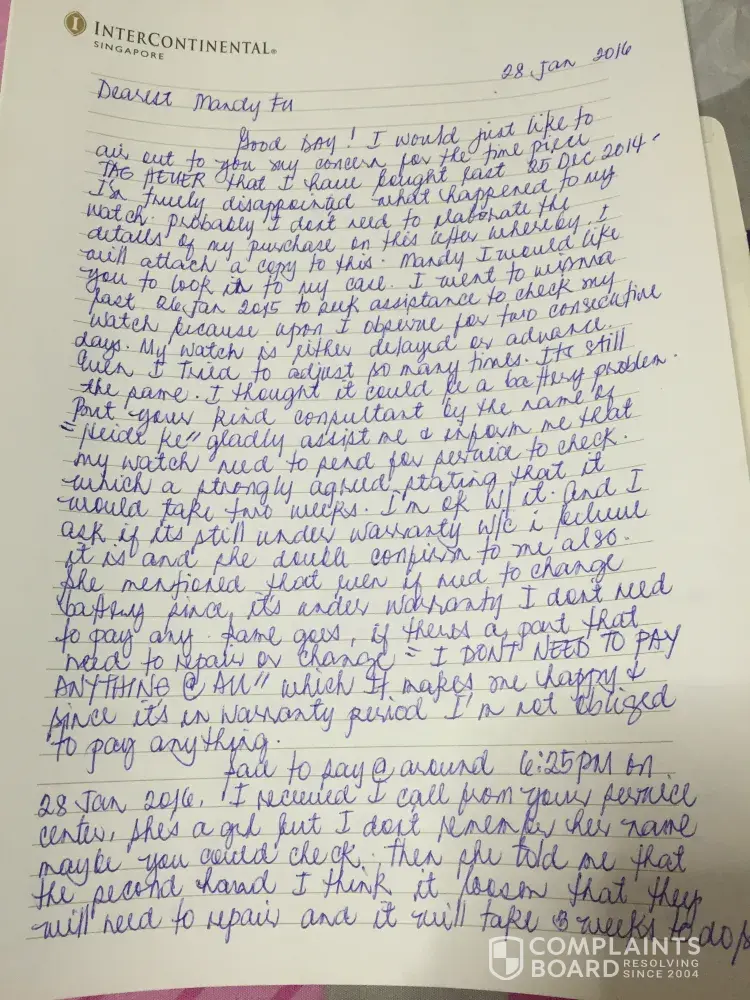 INTERCONTINENTAL®
SINGAPORE
28 Jan 2016
Dearest Mandy Fu
Good DAY! I would just like to
air out to you my concern for the time piece
TAG HEUER that I have bought last 25 Dec 2014.
I'm truely disappointed what happened to my
watch. Probably I don't need to elaborate the
details of my purchase on this letter whereby I
will attach a copy to this. Mandy I would like
you to look in to my case. I went to wisma
last 26 Jan 2015 to seek assistance to check my
watch because upon I observe for two consecutive
days. My watch is either delayed or advance.
Even I tried to adjust so many times. It's still
the same. I thought it could be a battery problem.
But your kind consultant by the name of
"Heidi Ke" gladly assist me & inform me that
my watch need to send for service to check.
which a strongly agreed stating that it
would take two weeks. I'm ok w/ it. And I
ask if its still under warranty w/c i believe
it is and she double confirm to me also.
She mentioned that even if need to change
battery since it's under warranty I dont need
to pay any. Same goes, if theres a part that
need to repair or change = I DONT NEED TO PAY
ANYTHING @ ALL" which It makes me happy &
since it's in warranty period I'm not obliged
to pay anything.
Sad to say @ around 6:25PM on
28 Jan 2016, I received I call from your service
center, shes a girl but I dont remember her name
maybe you could check. Then she told me that
the second hand I think it loosen that they
will need to repair and it will take 3 weeks to do
COMPLAINTS
BOARD RESOLVING
SINCE 2004